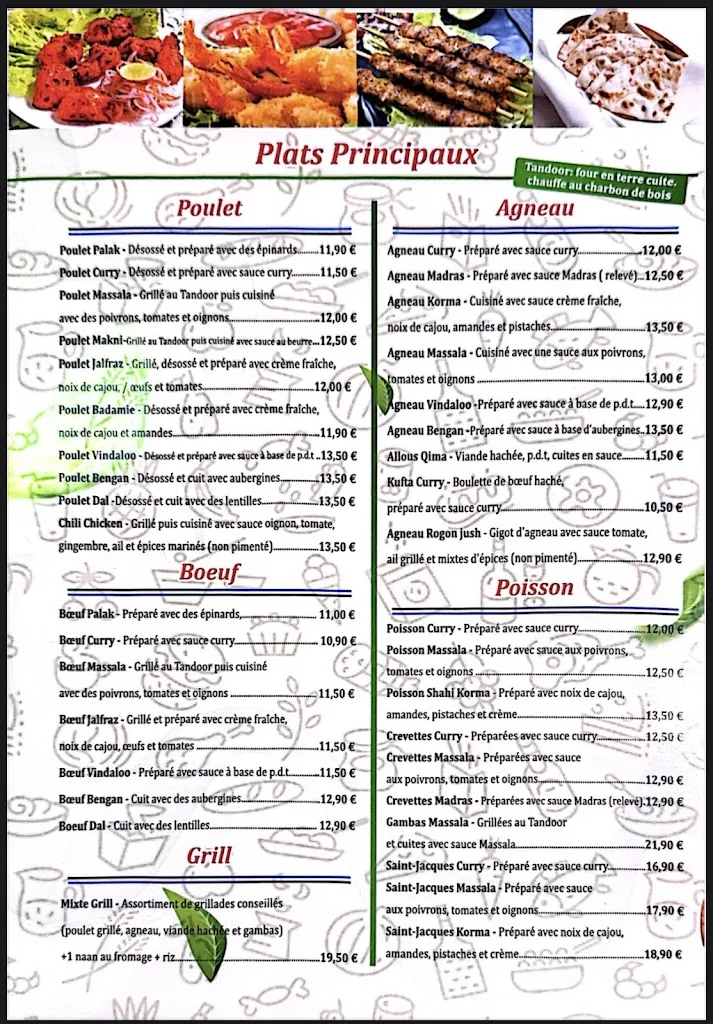 Plats Principaux
Tandoor: four en terre cuite,
chauffe au charbon de bois
Poulet
Poulet Palak - Désossé et préparé avec des épinards.....11,90 €
Poulet Curry - Désossé et préparé avec sauce curry.....11,50 €
Poulet Massala - Grillé au Tandoor puis cuisiné
avec des poivrons, tomates et oignons.....12,00 €
Poulet Makni-Grillé au Tandoor puis cuisiné avec sauce au beurre...12,50 €
Poulet Jalfraz - Grillé, désossé et préparé avec crème fraîche,
noix de cajou, / œufs et tomates.....12,00 €
Poulet Badamie - Désossé et préparé avec crème fraîche,
noix de cajou et amandes.....11,90 €
Poulet Vindaloo - Désossé et préparé avec sauce à base de p.d.t ..13,50 €
Poulet Bengan - Désossé et cuit avec aubergines.....13,50 €
Poulet Dal -Désossé et cuit avec des lentilles.....13,50 €
Chili Chicken - Grillé puis cuisiné avec sauce oignon, tomate,
gingembre, ail et épices marinés (non pimenté).....13,50 €
Boeuf
Bœuf Palak - Préparé avec des épinards,..... 11,00 €
Bœuf Curry - Préparé avec sauce curry..... 10,90 €
Bœuf Massala - Grillé au Tandoor puis cuisiné
avec des poivrons, tomates et oignons .....11,50 €
Bœuf Jalfraz - Grillé et préparé avec crème fraîche,
noix de cajou, œufs et tomates .....11,50 €
Bœuf Vindaloo - Préparé avec sauce à base de p.d.t.....11,50 €
Bœuf Bengan - Cuit avec des aubergines.....12,90 €
Boeuf Dal - Cuit avec des lentilles.....12,90 €
Grill
Mixte Grill - Assortiment de grillades conseillés
(poulet grillé, agneau, viande hachée et gambas)
+1 naan au fromage + riz.....19,50 €
Agneau
Agneau Curry - Préparé avec sauce curry.....12,00 €
Agneau Madras - Préparé avec sauce Madras ( relevé)...12,50 €
Agneau Korma - Cuisiné avec sauce crème fraîche,
noix de cajou, amandes et pistaches.....13,50 €
Agneau Massala - Cuisiné avec une sauce aux poivrons,
tomates et oignons .....13,00 €
Agneau Vindaloo -Préparé avec sauce à base de p.d.t....12,90 €
Agneau Bengan -Préparé avec sauce à base d'aubergines..13,50 €
Allous Qima - Viande hachée, p.d.t, cuites en sauce.....11,50 €
Kufta Curry - Boulette de bœuf haché,
préparé avec sauce curry.....10,50 €
Agneau Rogon Jush - Gigot d'agneau avec sauce tomate,
ail grillé et mixtes d'épices (non pimenté).....12,90 €
Poisson
Poisson Curry - Préparé avec sauce curry.....12,00 €
Poisson Massala - Préparé avec sauce aux poivrons,
tomates et oignons .....12,50 €
Poisson Shahi Korma - Préparé avec noix de cajou,
amandes, pistaches et crème.....13,50 €
Crevettes Curry - Préparées avec sauce curry.....12,50 €
Crevettes Massala - Préparées avec sauce
aux poivrons, tomates et oignons.....12,90 €
Crevettes Madras - Préparées avec sauce Madras (relevé).12,90 €
Gambas Massala - Grillées au Tandoor
et cuites avec sauce Massala.....21,90 €
Saint-Jacques Curry - Préparé avec sauce curry.....16,90 €
Saint-Jacques Massala - Préparé avec sauce
aux poivrons, tomates et oignons.....17,90 €
Saint-Jacques Korma - Préparé avec noix de cajou,
amandes, pistaches et crème.....18,90 €